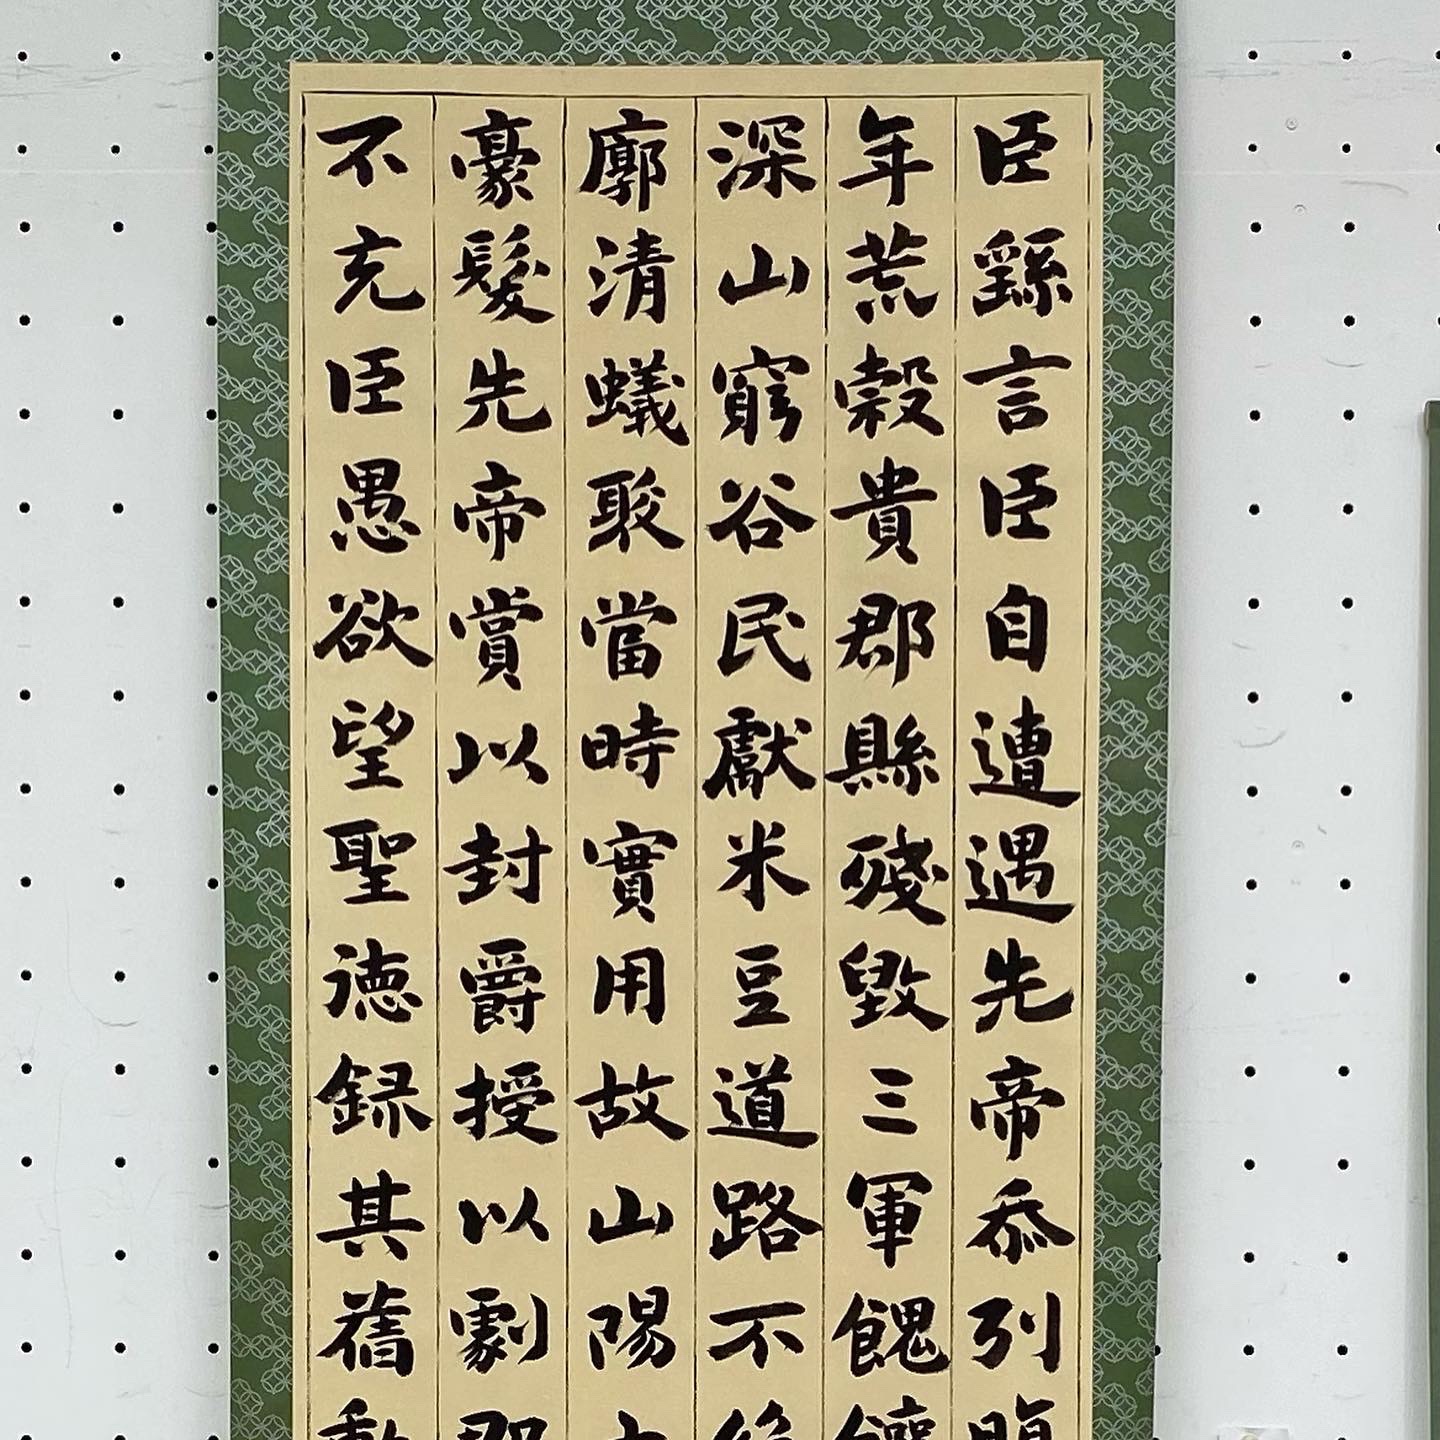 臣繇言臣自遭遇先帝忝列腹
年荒穀貴郡縣殘毀三軍餽饟
深山窮谷民獻米豆道路不絶
廓清蟻聚當時實用故山陽太
豪髮先帝賞以封爵授以劇郡
不充臣愚欲望聖徳録其舊勳